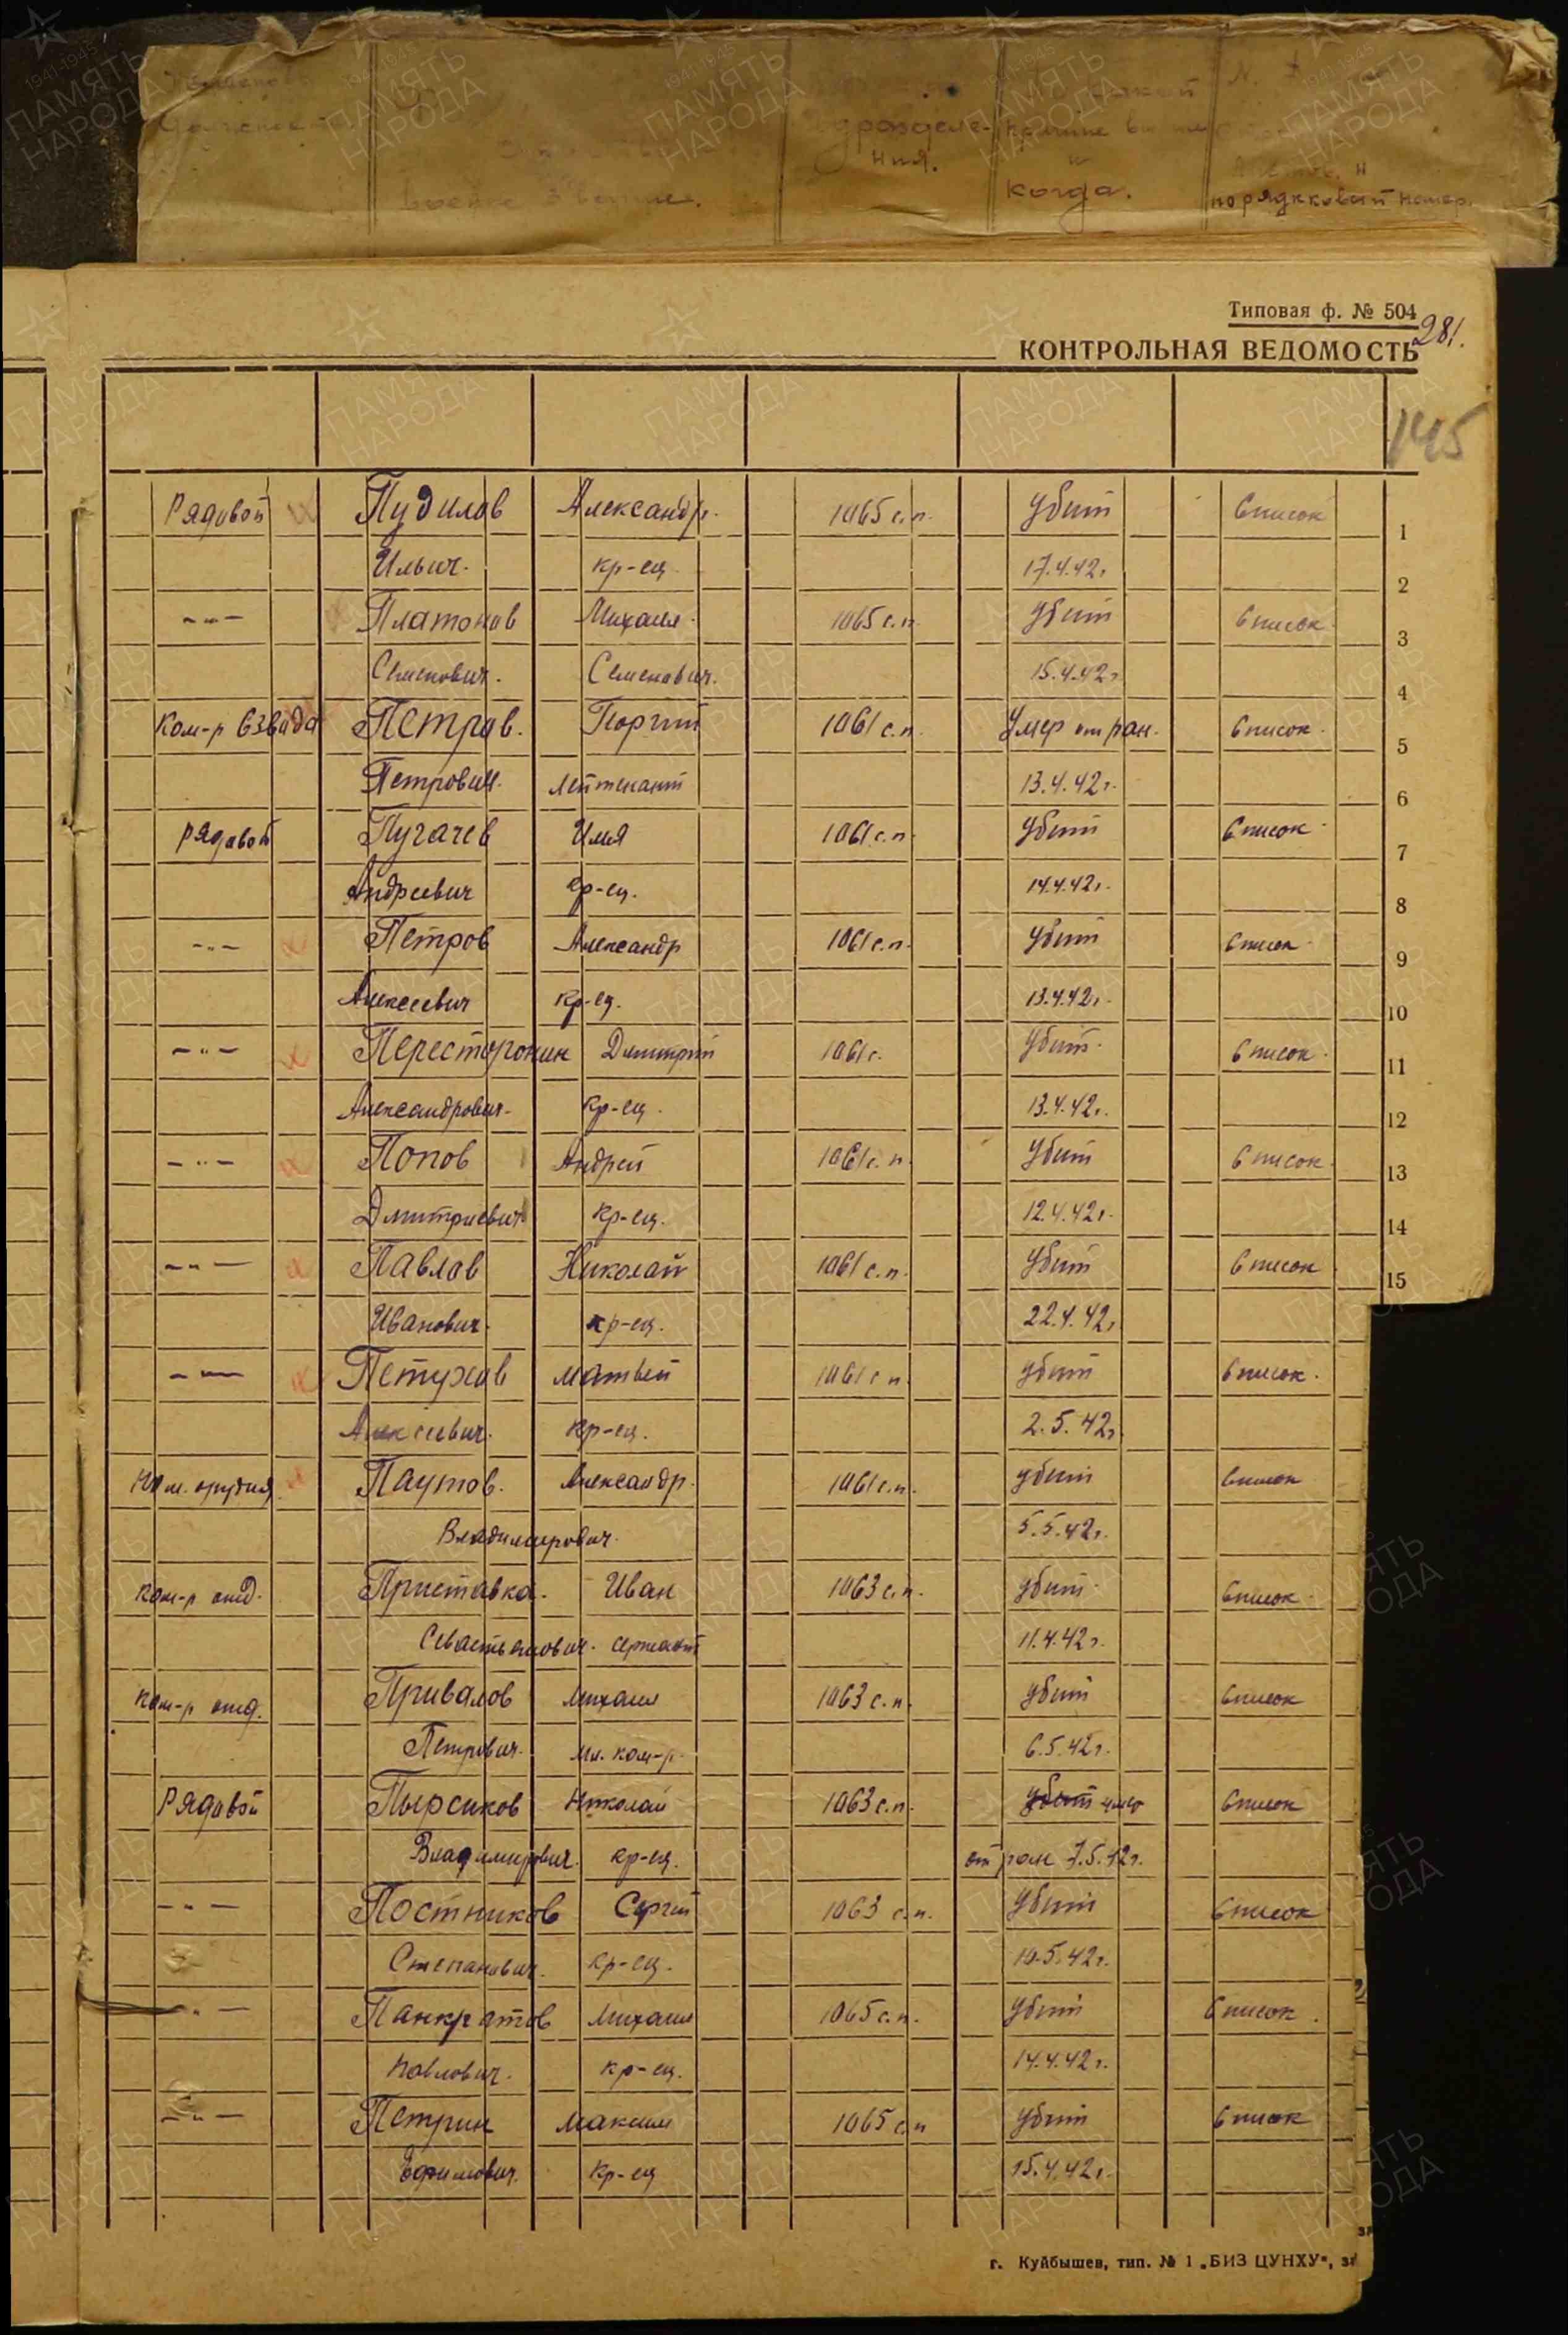 дразделе-
ния.
и
когда.
порядкковый номер.
Типовая ф. № 504
281.
КОНТРОЛЬНАЯ ВЕДОМОСТЬ
145
Рядовой Пудилов Александр. 1065 с.п. Убит Список 1
Ильич. кр-ец 17.4.42г. 2
-"- Платонов Михаил 1065 с.п. Убит Список 3
Семенович. Семенович. 15.4.42г 4
Ком-р взвода Петров. Георгий 1061 с.п. Умер от ран. Список 5
Петрович. лейтенант 13.4.42г. 6
Рядовой Пугачев Илья 1061 с.п. Убит Список 7
Андреевич кр-ец. 14.4.42г. 8
-"- Петров Александр 1061 с.п. Убит Список 9
Алексеевич кр-ец. 13.4.42г. 10
-"- Пересторонин Дмитрий 1061 с. Убит Список 11
Александрович. кр-ец. 13.4.42г. 12
-"- Попов Андрей 1061 с.п. Убит Список 13
Дмитриевич кр-ец. 12.4.42г. 14
-"- Павлов Николай 1061 с.п. Убит Список 15
Иванович. кр-ец. 22.4.42г
-"- Петухов Матвей 1061 с п. убит Список.
Алексеевич. кр-ец. 2.5.42г
Ком. орудия. Паутов. Александр. 1061 с.п. убит Список
Владимирович. 5.5.42г.
ком-р отд. Приставка. Иван 1063 с.п. убит Список
Севастьянович. сержант 11.4.42г.
ком-р отд. Привалов Михаил 1063 с.п. убит Список
Петрович. мл. ком-р. 6.5.42г.
Рядовой Пырсиков Николай 1063 с.п. убит умер Список
Владимирович. кр-ец. от ран 7.5.42г.
-"- Постников Сергей 1063 с.п. Убит Список
Степанович. кр-ец. 10.5.42г.
-"- Панкратов Михаил 1065 с.п. Убит Список.
Павлович. кр-ец. 14.4.42г.
-"- Петрин Максим 1065 с.п Убит Список
Ефимович. кр-ец 15.4.42г.
г. Куйбышев, тип. № 1 „БИЗ ЦУНХУ“, за